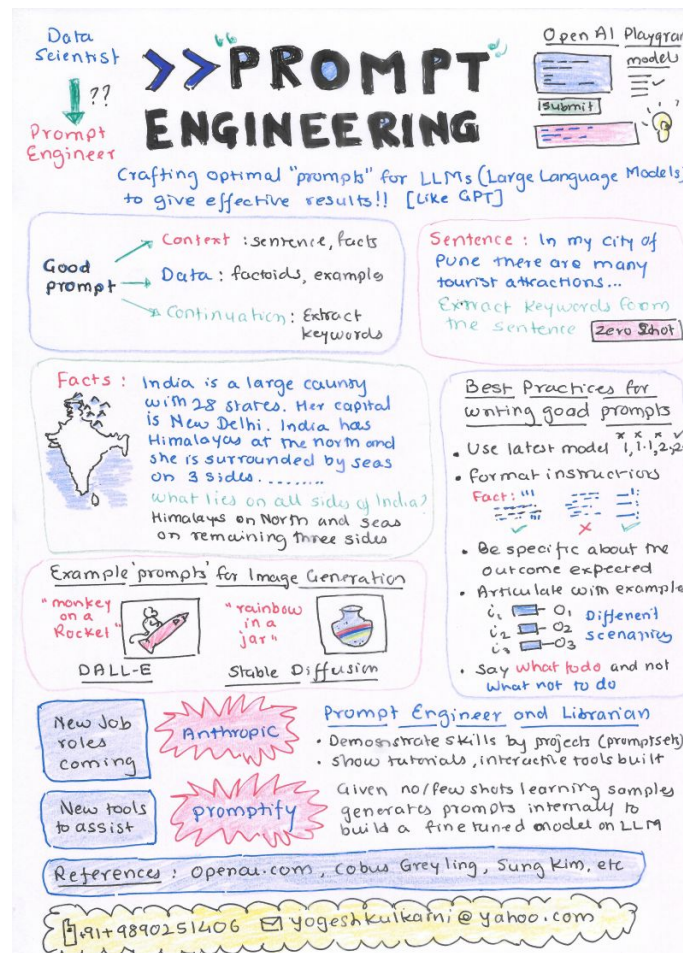 Data
Scientist
??
Prompt
Engineer
>> "PROMPT"
ENGINEERING
Open AI Playgrou
models
submit
Crafting optimal "prompts" for LLMs (Large Language Models)
to give effective results!! [Like GPT]
Good
prompt
Context : sentence, facts
Data : factoids, example
Continuation : Extract
keywords
Sentence : In my city of
Pune there are many
tourist attractions...
Extract keywords form
the sentence Zero Shot
Facts : India is a large country
with 28 states. Her capital
is New Delhi. India has
Himalayas at the north and
she is surrounded by seas
on 3 sides.........
What lies on all sides of India?
Himalayas on North and seas
on remaining three sides
Best Practices for
writing good prompts
• Use latest model 1, 1.1, 2, 2
• Format instructions
Fact : "'
• Be specific about the
outcome expected
• Articulate with example
i1 O1
i2 O2
i3 O3
Different
scenarios
• Say what to do and not
what not to do
Example 'prompts' for Image Generation
"monkey
on a
Rocket"
DALL-E
"rainbow
in a
jar"
Stable Diffusion
New Job
roles
coming
Anthropic
Prompt Engineer and Librarian
• Demonstrate skills by projects (promptsets)
• Show tutorials, interactive tools built
New tools
to assist
promptify
Given no/few shots learning samples
generates prompts internally to
build a fine tuned model on LLM
References : Openai.com, Cobus Greyling, Sung Kim, etc
+91+9890251406 yogeshkulkarni@yahoo.com